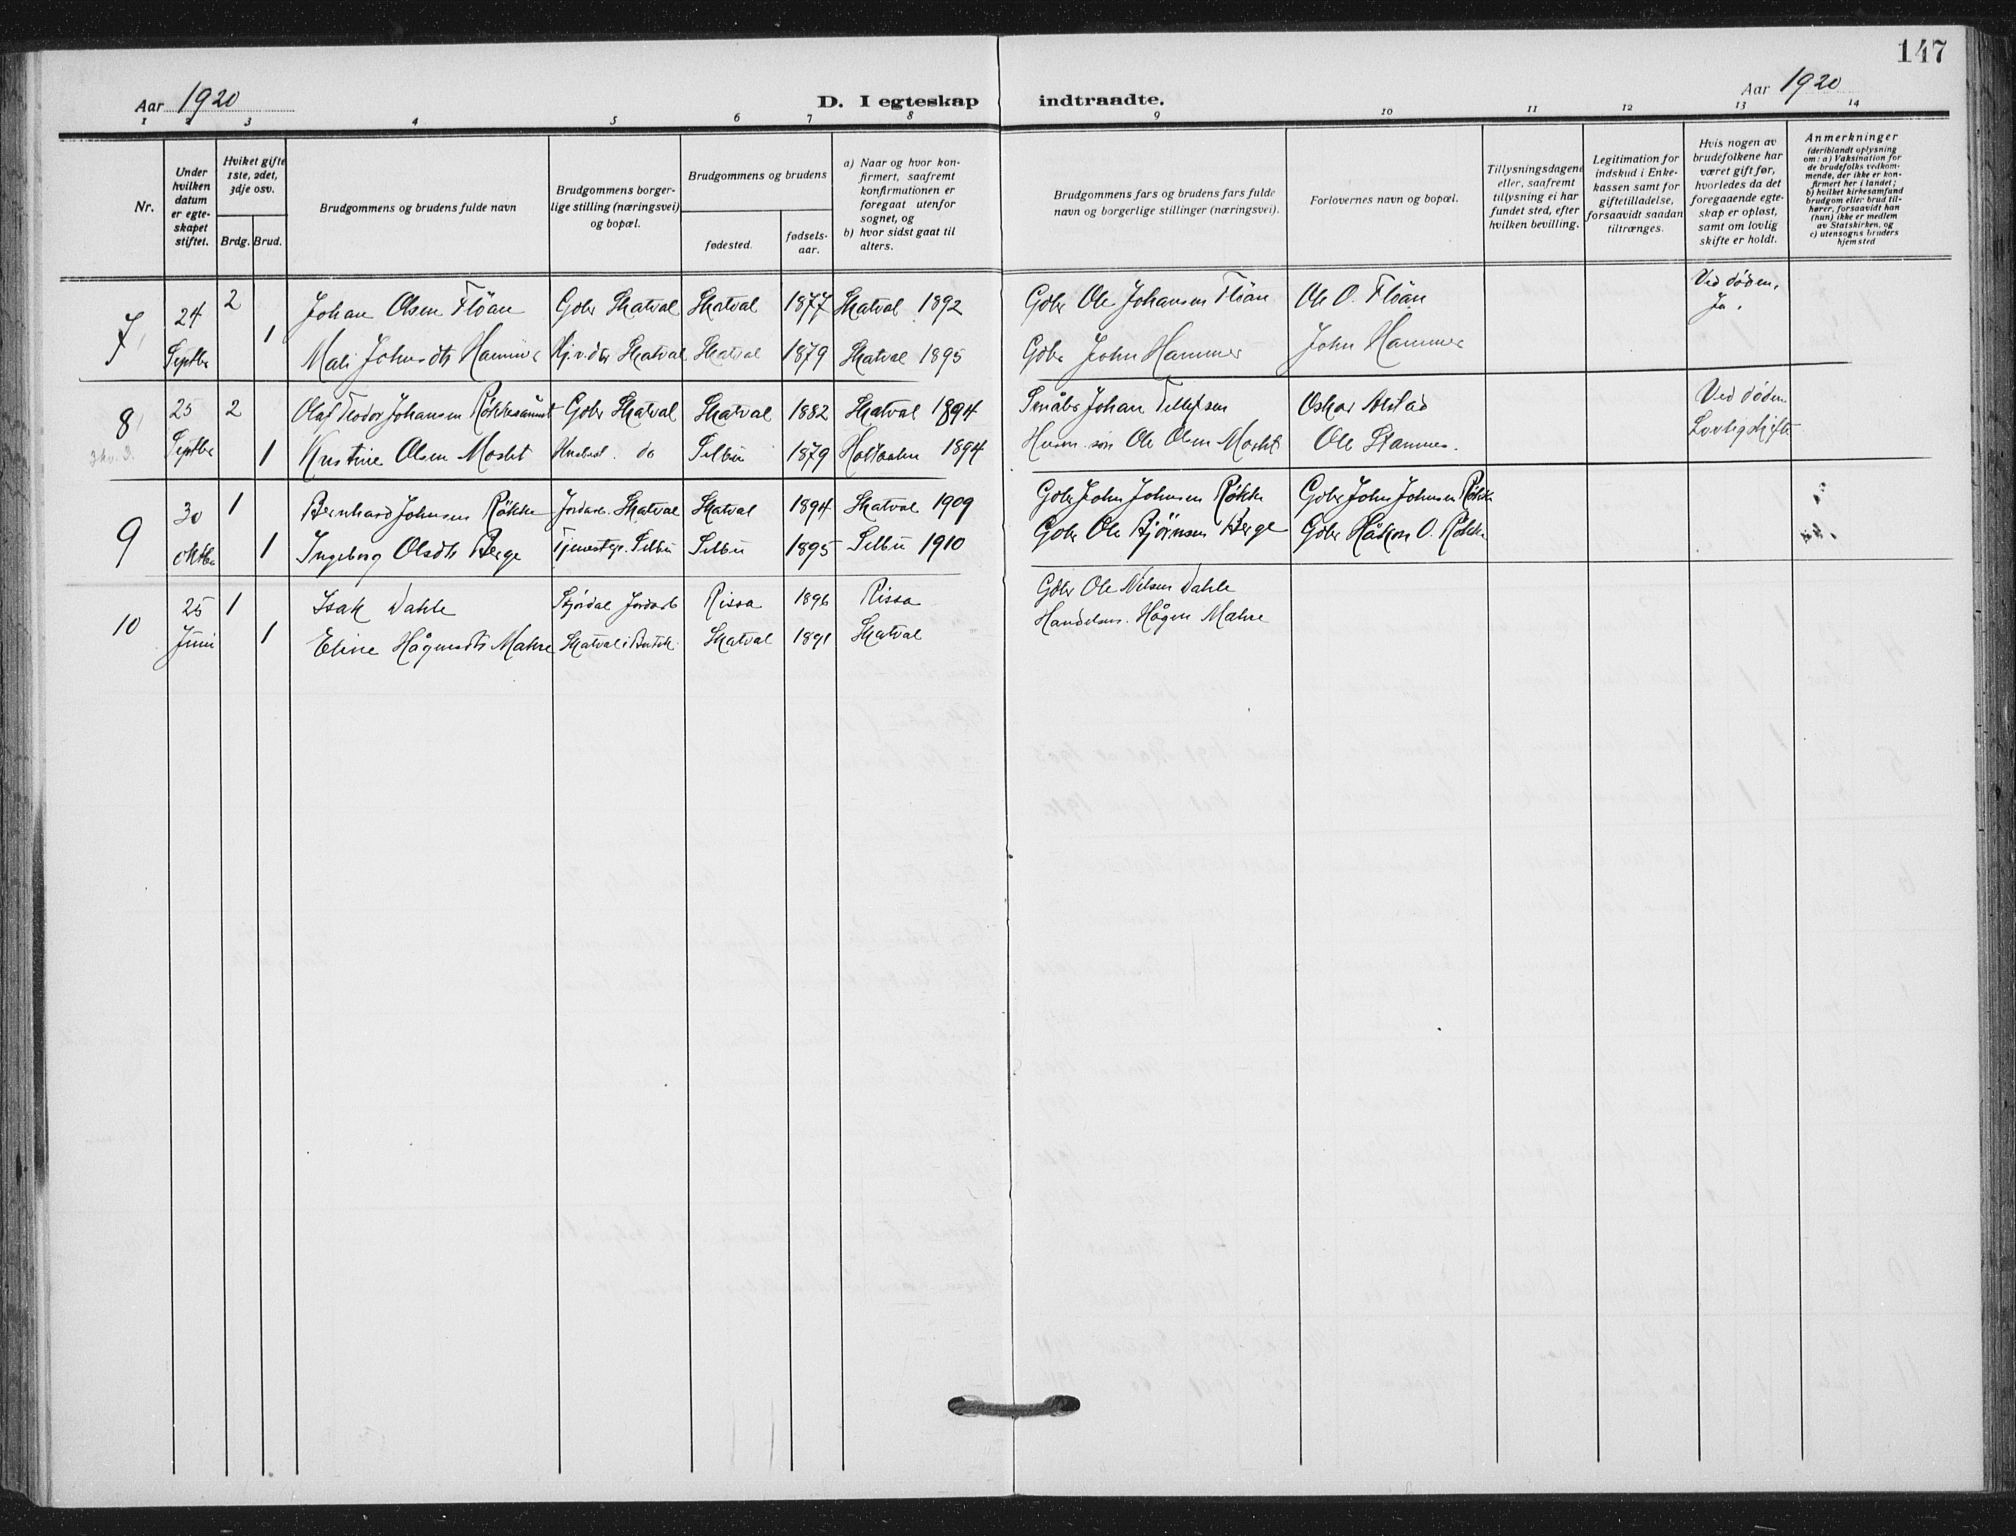 147
Aar 1920
D. I egteskap indtraadte.
Aar 1920
1 2 3 4 5 6 7 8 9 10 11 12 13 14
Nr.
Under hvilken datum er egteskapet stiftet.
Hviket gifte 1ste, 2det, 3dje osv.
Brdg. Brud.
Brudgommens og brudens fulde navn
Brudgommens borgerlige stilling (næringsvei) og bopæl.
Brudgommens og brudens
fødested.
fødselsaar.
a) Naar og hvor konfirmert, saafremt konfirmationen er foregaat utenfor sognet, og
b) hvor sidst gaat til alters.
Brudgommens fars og brudens fars fulde navn og borgerlige stillinger (næringsvei).
Forlovernes navn og bopæl.
Tillysningsdagene eller, saafremt tillysning ei har fundet sted, efter hvilken bevilling.
Legitimation for indskud i Enkekassen samt for giftetilladelse, forsaavidt saadan tiltrænges.
Hvis nogen av brudefolkene har været gift før, hvorledes da det foregaaende egteskap er opløst, samt om lovlig skifte er holdt.
Anmerkninger (deriblandt oplysning om: a) Vaksination for de brudefolks vedkommende, der ikke er konfirmert her i landet; b) hvilket kirkesamfund brudgom eller brud tilhører, forsaavidt han (hun) ikke er medlem av Statskirken, og c) utensogns bruders hjemsted
7 24 Septbr 2 Johan Olsen Flöan Gbr Skatval Skatval 1877 Skatval 1892 Gbr Ole Johansen Flöan Ole O. Flöan Ved døden, Ja.
1 Mali Johnsdtr Hammer Skatval Skatval 1879 Skatval 1895 Gbr John Hammer John Hammer
8 25 Septbr 2 Olaf Teodor Johansen Gbr Skatval Skatval 1882 Skatval 1894 Johan Oskar Ved døden
1 Kristine Olsen Moslet do Selbu 1879 Holtaalen 1894 Ole Olsen Moslet Ole Stamnes. Lovlig skifte
9 30 oktbr 1 Bernhard Johnsen Røkke Skatval Skatval 1894 Skatval 1909 Gbr John Johnsen Røkke Gbr John Johnsen Røkke
1 Ingeborg Olsdtr Berge Selbu Selbu 1895 Selbu 1910 Gbr Ole Bjørnsen Berge Gbr Håkon O. Røkke
10 25 Juni 1 Isak Dahle Stjördal Rissa 1896 Rissa Gbr Ole Nilsen Dahle
1 Eline Mahre Skatval Skatval 1891 Skatval Handelsm. Hågen Mahre